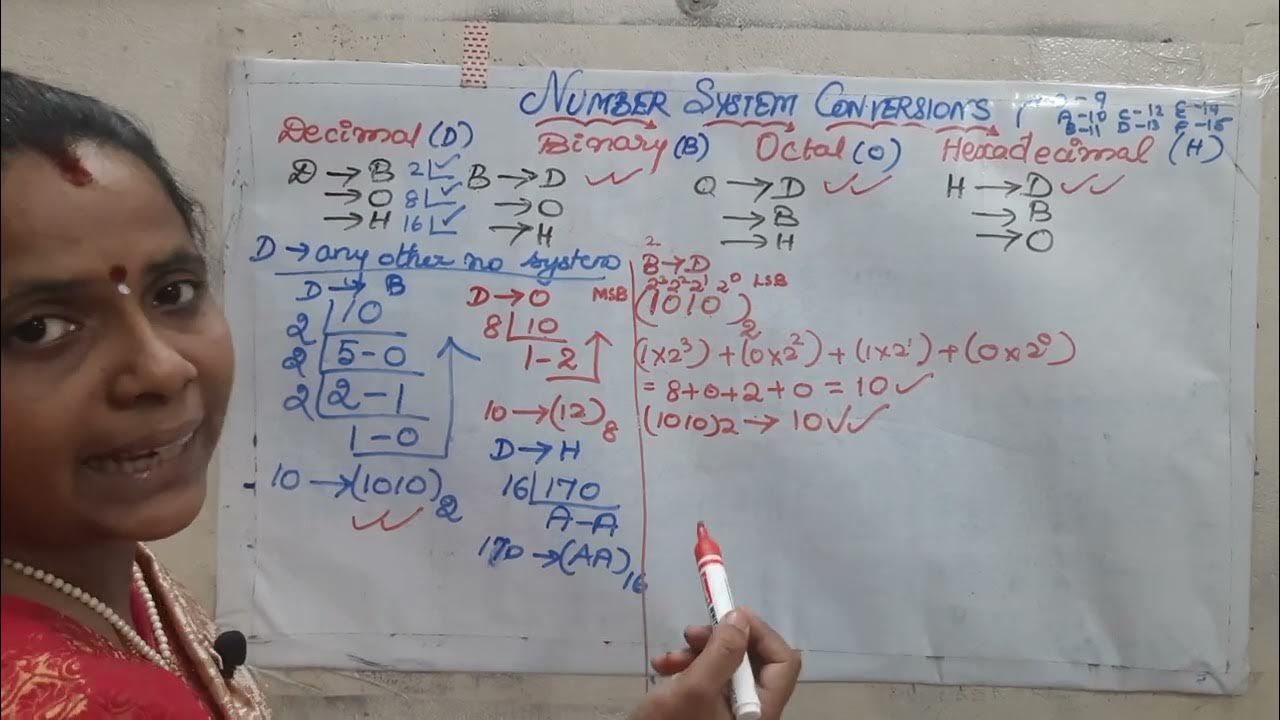 NUMBER SYSTEM CONVERSIONS
- 9
A-10 C-12 E-14
B-11 D-13 F-15
Decimal (D) Binary (B) Octal (O) Hexadecimal (H)
D → B 2
→ O 8
→ H 16
B → D
→ O
→ H
O → D
→ B
→ H
H → D
→ B
→ O
D → any other no system
D → B
2 10
2 5-0
2 2-1
1-0
10 → (1010)2
D → O
8 10
1-2
10 → (12)8
D → H
16 170
A-A
170 → (AA)16
2
B → D
MSB 2³ 2² 2¹ 2⁰ LSB
(1010)2
(1×2³) + (0×2²) + (1×2¹) + (0×2⁰)
= 8+0+2+0 = 10
(1010)2 → 10